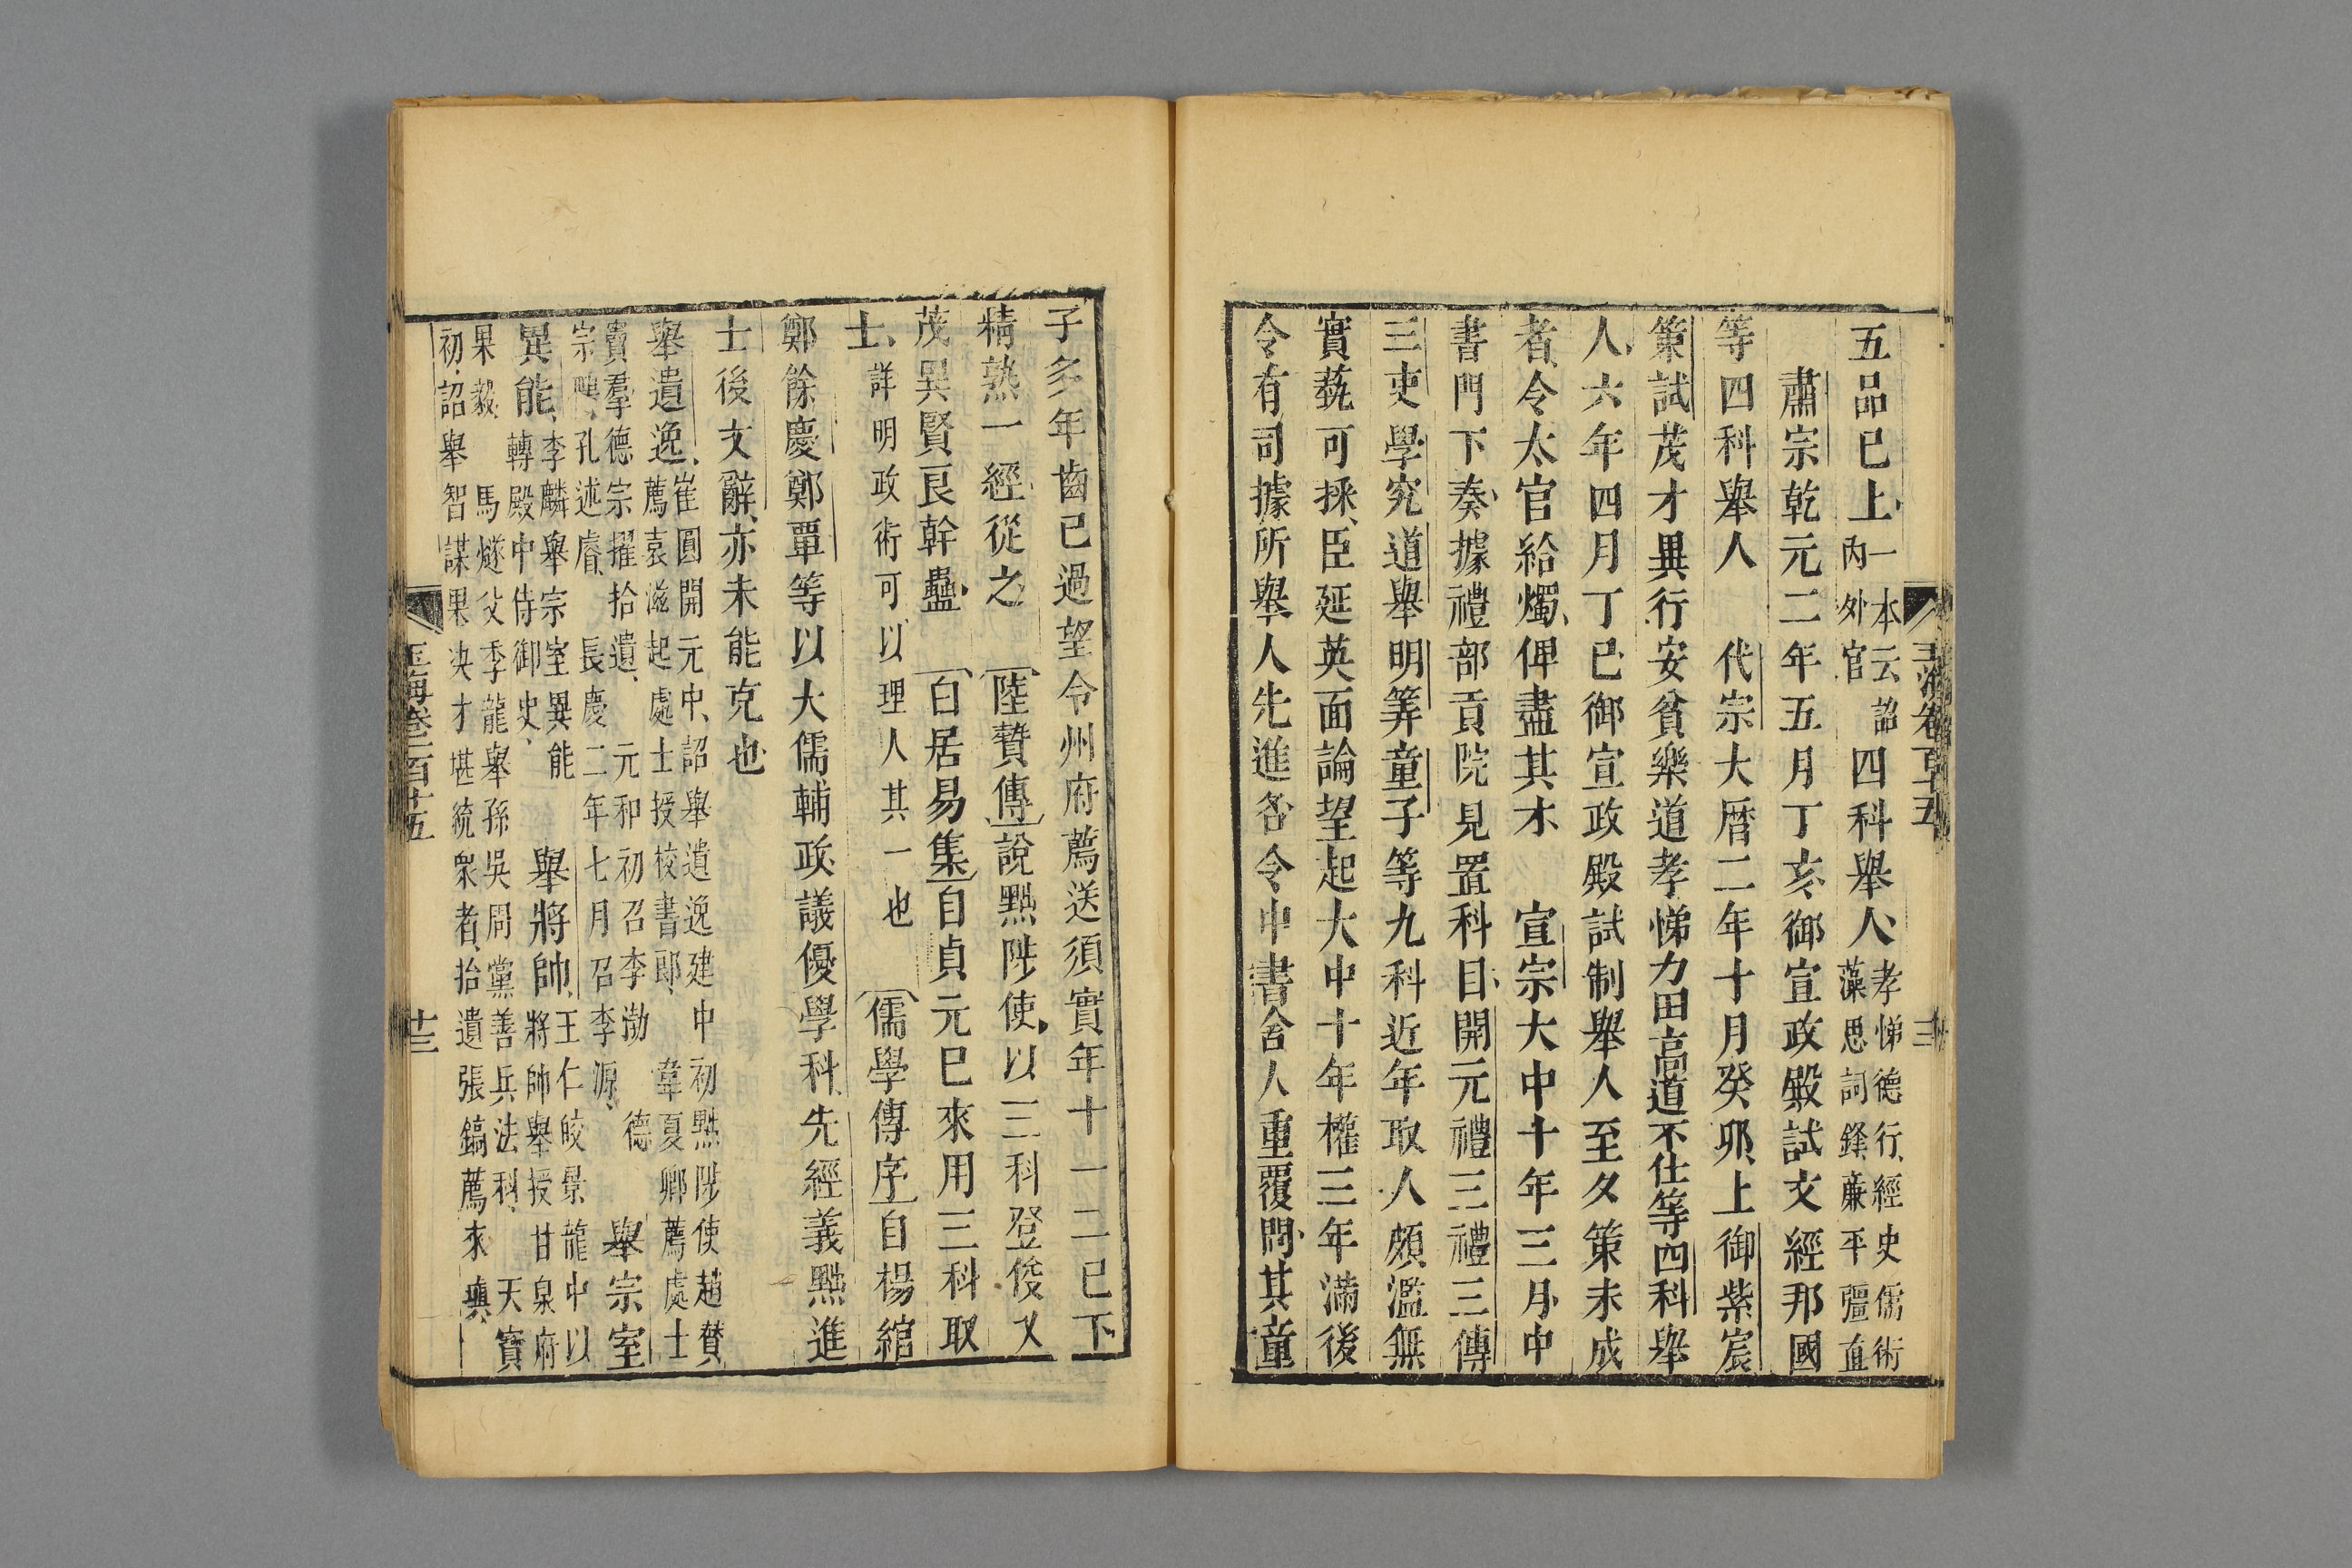 五品已上一本云詔内外官四科舉人孝悌德行經史儒術藻思詞鋒廉平彊直
肅宗乾元二年五月丁亥御宣政殿試文經邦國
等四科舉人　代宗大曆二年十月癸夘上御紫宸
策試茂才異行安貧樂道孝悌力田高道不仕等四科舉
人六年四月丁巳御宣政殿試制舉人至夕策未成
者令太官給燭俾盡其才　宣宗大中十年三月中
書門下奏據禮部貢院見置科目開元禮三禮三傳
三吏學究道舉明筭童子等九科近年取人頗濫無
實蓺可採臣延英面論望起大中十年權三年滿後
令有司據所舉人先進名令中書舍人重覆問其童
玉海卷一百十五
子多年齒已過望令州府薦送須實年十一二已下
精熟一經從之　陸贄傳說黜陟使以三科登俊乂
茂異賢良幹蠱　白居易集自貞元已來用三科取
士詳明政術可以理人其一也　儒學傳序自楊綰
鄭餘慶鄭覃等以大儒輔政議優學科先經義黜進
士後文辭亦未能克也
舉遺逸崔圓開元中詔舉遺逸建中初黜陟使趙贊薦袁滋起處士授校書郎韋夏卿薦處士
竇羣德宗擢拾遺元和初召李渤德宗唨孔述睿長慶二年七月召李源　舉宗室
異能李麟舉宗室異能轉殿中侍御史　舉將帥王仁皎景龍中以將帥舉授甘泉府
果毅馬燧父季龍舉孫吳周黨善兵法科天寶初詔舉智謀果決才堪統衆者拾遺張鎬薦來瑱
玉海卷一百十五
十三